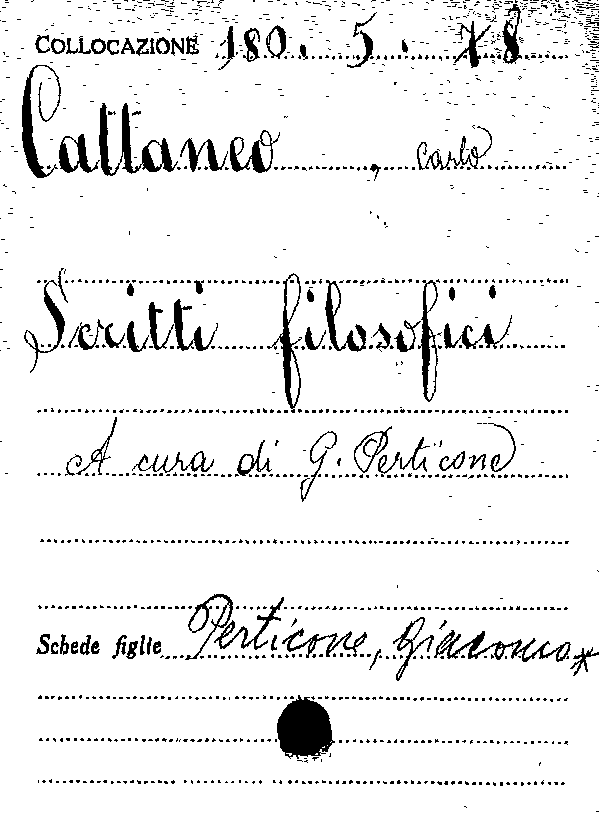 COLLOCAZIONE 180. 5. 78
Cattaneo, Carlo
Scritti filosofici
A cura di G. Perticone
Schede figlie Perticone, Giacomo*